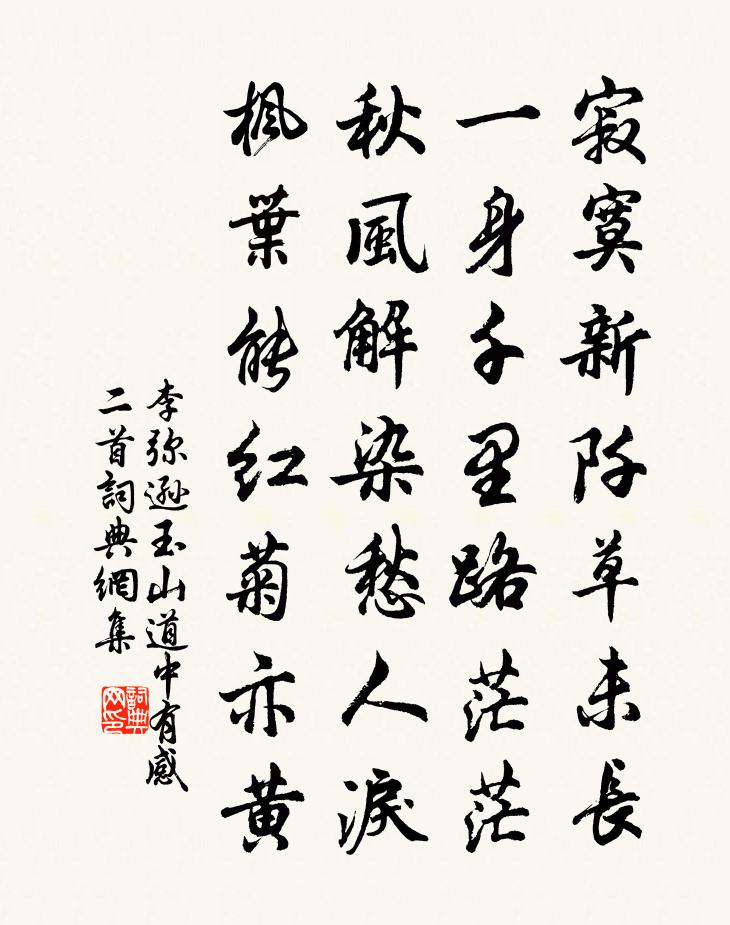 寂寞新阡草未長
一身千里路茫茫
秋風解染愁人淚
楓葉能紅菊亦黃
李弥遜玉山道中有感
二首詞典網集
詞典
网印